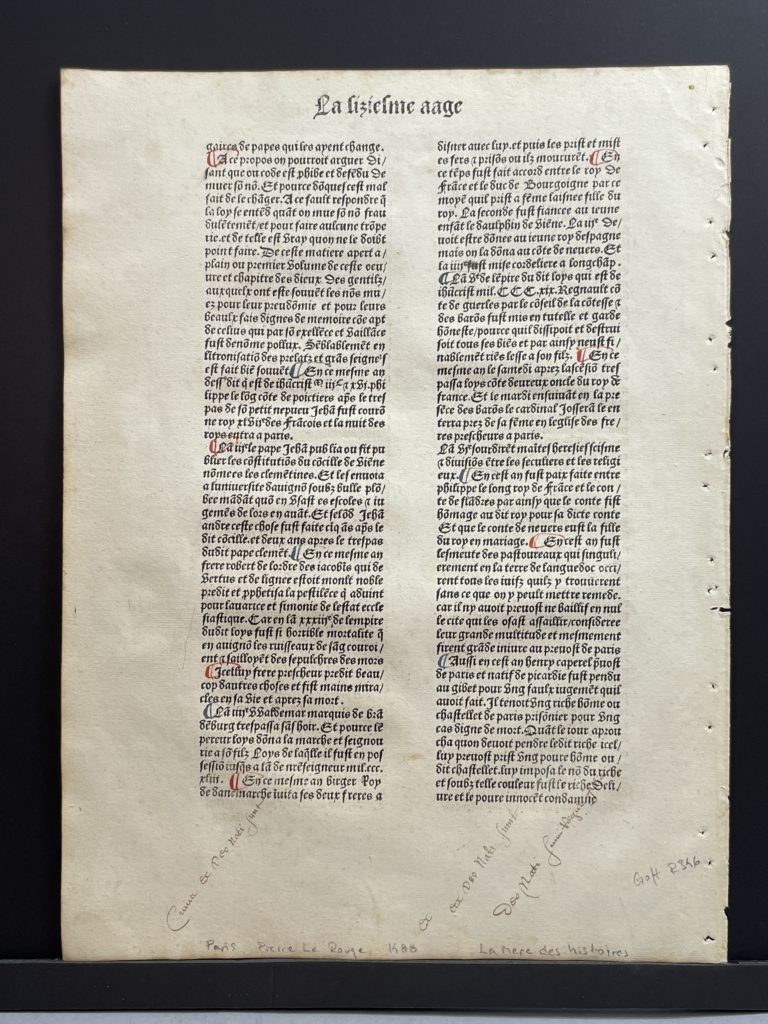 La siziesme aage
gaires de papes qui les ayent change.
¶ A ce propos on pourroit arguer di/
sant que ou code est ꝓhibe et defēdu de
muer sō nō. Et pource dōques cest mal
fait de le chāger. A ce fault respondre q̄
la loy se entēd quāt on mue sō nō frau
dulētemēt/et pour faire aulcune trōpe
rie.et de telle est vray quon ne le doibt
point faire. De ceste matiere apert a/
plain ou premier volume de ceste oeu/
ure et chapitre des dieux des gentilz/
auxquelx ont este souuēt les nōs mu/
ez pour leur preudōmie et pour leurs
beaulx fais dignes de memoire cōe apt
de celius qui par sō exellēce et vaillāce
fust denōme pollux. Sēblablemēt en
litronisatiō des prelatz et grās seignēs
est fait biē souuēt ¶ En ce mesme an
dess⁹dit q̄ est de ihūcrist M iiiᶜ ⁊ xvi.phi
lippe le lōg cōte de poitiers apēs le tres
pas de sō petit nepueu Jehā fust courō
ne roy xlviiᵉ des Frācois et la nuit des
roys entra a paris.
¶ Lā iiiᵉ le pape Jehā publia ou fit pu
blier les cōstitutiōs du cōcille de viēne
nōmees les clemētines. Et les enuoia
a luniuersite dauignō soubz bulle plō/
bee mādāt quō en vsast es escoles ⁊ iu
gemēs de lors en auāt. Et selōd Jehā
andre ceste chose fust faite ciq̄ās apēs le
dit cōcille.et deux ans apres le trespas
dudit pape clemēt. ¶ En ce mesme an
frere robert de lordre des iacobīs qui de
vertus et de lignee estoit moult noble
predit et ꝓphetisa la pestilēce q̄ aduint
pour lauarice et simonie de lestat eccle
siastique. Car en lā xxxiiiᵉ de lempire
dudit loys fust si horrible mortalite q̄
en auignō les ruisseaux de sāg couroi/
ent ⁊ sailloyēt des sepulchres des mors
¶ Icelluy frere prescheur predit beau/
cop dautres choses et fist mains mira/
cles en sa vie et aprez sa mort.
¶ Lā iiiiᵉ Valdemar marquis de brā
dēburg trespassa sās hoir. Et pource lē
pereur loys dōna la marche et seignou
rie a sō filz Loys de laq̄lle il fust en pos
sessiō iusq̄s a lā de nr̄eseigneur mil.ccc.
xliii. ¶ En ce mesme an birger Roy
de danemarche iuita ses deux freres a
disner auec luy.et puis les prist et mist
es fers ⁊ prisōs ou ilz moururēt. ¶ En
ce tēps fust fait accord entre le roy de
Frāce et le duc de Bourgoigne par ce
moyē quil prist a fēme laisnee fille du
roy. La seconde fust fiancee au ieune
enfāt le daulphin de viēne. La iiiᵉ de/
uoit estre dōnee au ieune roy despagne
mais on la dōna au cōte de neuers. Et
la iiiiᵉ fust mise cordeliere a longchāp.
¶ Lā vᵉ de lēpire du dit loys qui est de
ihūcrist mil.CCC.xix. Regnault cō
te de guerles par le cōseil de la cōtesse ⁊
des barōs fust mis en tutelle et garde
hōneste/pource quil dissipoit et destrui
soit tous ses biēs et par ainsy neust fi/
nablemēt riēs lesse a son filz. ¶ En ce
mesme an le samedi aprez lascēsiō tres
passa loys cōte deureux oncle du roy de
france. Et le mardi ensuiuāt en la pre
sēce des barōs le cardinal Josserā le en
terra prez de sa fēme en leglise des fre/
res prescheurs a paris.
Lā vᵉ sourdirēt maītes heresies scisme
⁊ diuisiōs ētre les seculiers et les religi
eux. ¶ En cest an fust paix faite entre
philippe le long roy de Frāce et le con/
te de flādres par ainsy que le conte fist
hōmage au dit roy pour sa dicte conte
Et que le conte de neuers eust la fille
du roy en mariage. ¶ En cest an fust
lesmeute des pastoureaux qui singuli/
erement en la terre de languedoc occi/
rent tous les iuifz quilz y trouuerent
sans ce que on y peult mettre remede.
car il ny auoit preuost ne baillif en nul
le cite qui les osast assaillir/consideree
leur grande multitude et mesmement
firent grāde iniure au preuost de paris
¶ Aussi en cest an henry caperel p̄uost
de paris et natif de picardie fust pendu
au gibet pour vng faulx iugement quil
auoit fait. Il tenoit vng riche hōme ou
chastellet de paris prisōnier pour vng
cas digne de mort. Quāt le iour aprou
cha quon deuoit pendre ledit riche icel/
luy preuost prist vng poure hōme ou/
dit chastellet.luy imposa le nō du riche
et soubz telle couleur fust le riche deli/
ure et le poure innocēt condamne
ex Deo Nati sunt
ex ex Deo Nati sunt
Deo Nati sunt
Goff R346
Paris Pierre Le Rouge 1488 La Mere des histoires